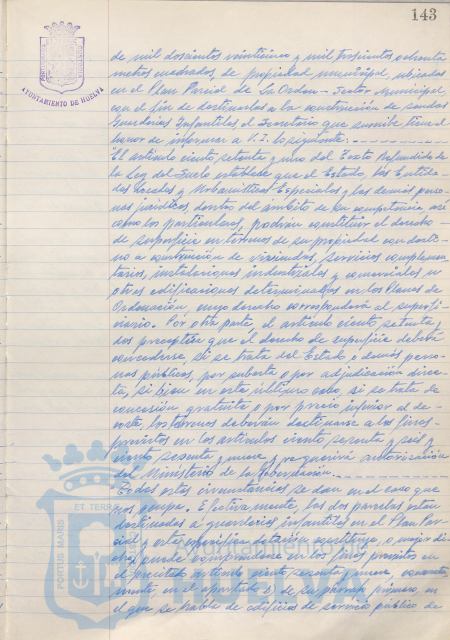 143
AYUNTAMIENTO DE HUELVA
de mil doscientos veinticinco y mil trescientos ochenta
metros cuadrados, de propiedad municipal, ubicadas
en el Plan Parcial de La Orden - Sector Municipal
con el fin de destinarlos a la construcción de sendas
Guarderías Infantiles, el Secretario que suscribe tiene el
honor de informar a V.I. lo siguiente:
"El artículo ciento setenta y uno del Texto Refundido de
la Ley del Suelo establece que el Estado, las Entida-
des Locales y Urbanísticas Especiales y las demás perso-
nas jurídicas, dentro del ámbito de su competencia así
como los particulares, podrán constituir el derecho
de superficie en terrenos de su propiedad con desti-
no a construcción de viviendas, servicios complemen-
tarios, instalaciones industriales y comerciales u
otras edificaciones determinadas en los Planes de
Ordenación, cuyo derecho corresponderá al superfi-
ciario. Por otra parte el artículo ciento setenta y
dos preceptúa que el derecho de superficie deberá
concederse, si se trata del Estado o demás perso-
nas públicas, por subasta o por adjudicación direc-
ta, si bien en este último caso, si se trata de
concesión gratuita o por precio inferior al de
coste, los terrenos deberán destinarse a los fines
previstos en los artículos ciento sesenta y seis y
ciento sesenta y nueve y requerirá autorización
del Ministerio de la Gobernación.
Todas estas circunstancias se dan en el caso que
nos ocupa. Efectivamente, las dos parcelas están
destinadas a guarderías infantiles en el Plan Par-
cial y esta específica dotación constituye, o mejor di-
cho, puede comprenderse en los fines previstos en
el precitado artículo ciento sesenta y nueve, concreta-
mente, en el apartado b) de su párrafo primero, en
el que se habla de edificios de servicio público de
PORTUS MARIS ET TERRAE
Ayuntamiento de